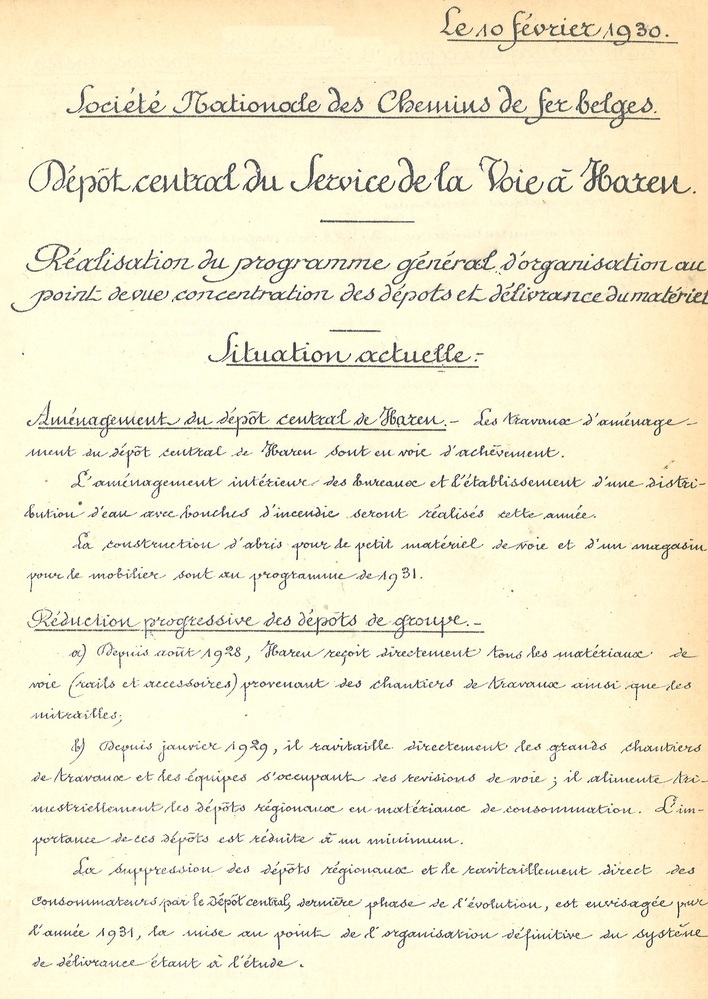 Le 10 février 1930.
Société Nationale des Chemins de fer belges.
Dépôt central du Service de la Voie à Haren.
Réalisation du programme général d'organisation au
point de vue concentration des dépots et délivrance du matériel
Situation actuelle:-
Aménagement du dépôt central de Haren.- Les travaux d'aménage-
ment du dépôt central de Haren sont en voie d'achèvement.
L'aménagement intérieur des bureaux et l'établissement d'une distri-
bution d'eau avec bouches d'incendie seront réalisés cette année.
La construction d'abris pour le petit matériel de voie et d'un magasin
pour le mobilier sont au programme de 1931.
Réduction progressive des dépôts de groupe.-
a) Depuis août 1928, Haren reçoit directement tous les matériaux de
voie (rails et accessoires) provenant des chantiers de travaux ainsi que les
mitrailles;
b) Depuis janvier 1929, il ravitaille directement les grands chantiers
de travaux et les équipes s'occupant des revisions de voie; il alimente tri-
mestriellement les dépôts régionaux en matériaux de consommation. L'im-
portance de ces dépôts est réduite à un minimum.
La suppression des dépôts régionaux et le ravitaillement direct des
consommateurs par le Dépôt central, dernière phase de l'évolution, est envisagée pour
l'année 1931, la mise au point de l'organisation définitive du système
de délivrance étant à l'étude.